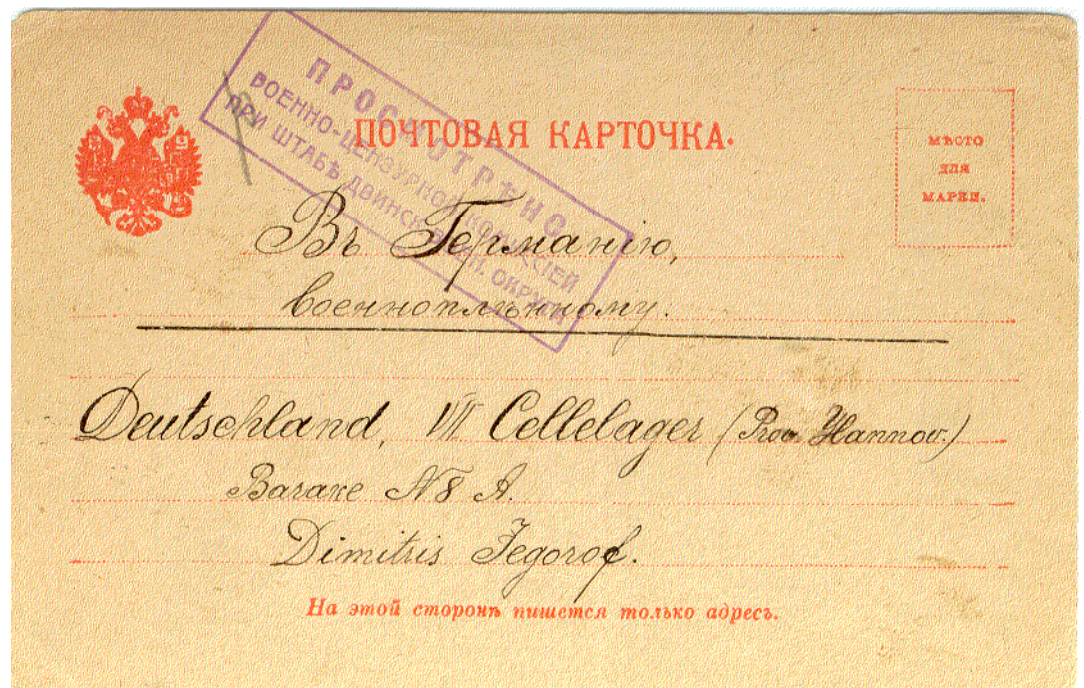 ПРОСМОТРѢНО
ВОЕННО-ЦЕНЗУРНОЙ КОМИССІЕЙ
ПРИ ШТАБѢ ДВИНСК. ВОЕН. ОКРУГА
ПОЧТОВАЯ КАРТОЧКА.
МѢСТО
ДЛЯ
МАРКИ.
Въ Германію,
военноплѣнному.
Deutschland, VII Cellelager (Prov. Hannov.)
Barake N8 A.
Dimitris Jegorof.
На этой сторонѣ пишется только адресъ.